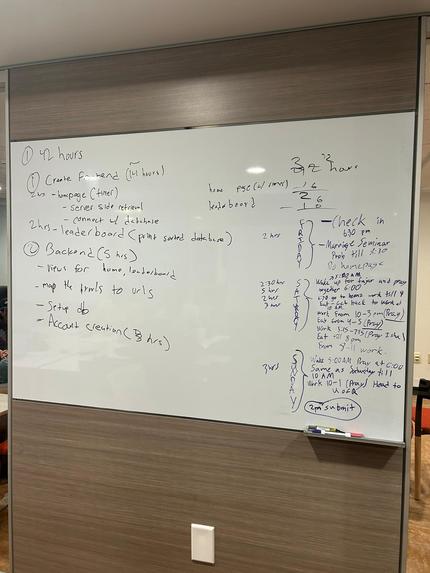 ① 42 hours
① Create Frontend (14 hours)
2hrs - homepage (timer)
- server side retrieval
- connect w/ database
2hrs - leaderboard (print sorted database)
② Backend (5 hrs)
- views for home, leaderboard
- map the htmls to urls
- Setup db
- Account creation (3 hrs)
hours
home page (w/ timer) 16
leaderboard
FRIDAY
2 hrs
- Check in
630 pm
- Marriage Seminar
from till
homepage
SATURDAY
2:30 hrs
5 hrs
2 hrs
3 hrs
Wake up for fajar and pray
together 6:00
go to home work till 9
Eat - Get back to work at
10 AM
work from 10-3 pm (Pray)
Eat from 4-5 (Pray)
Work 5:15-7:15 (Pray Isha)
Eat till 8 pm
from 8-11 work.
SUNDAY
3hrs
Wake 5:00AM Pray at 6:00
Same as Saturday till
10 AM
Work 10-1 (Pray) Head to
UofC
2pm submit